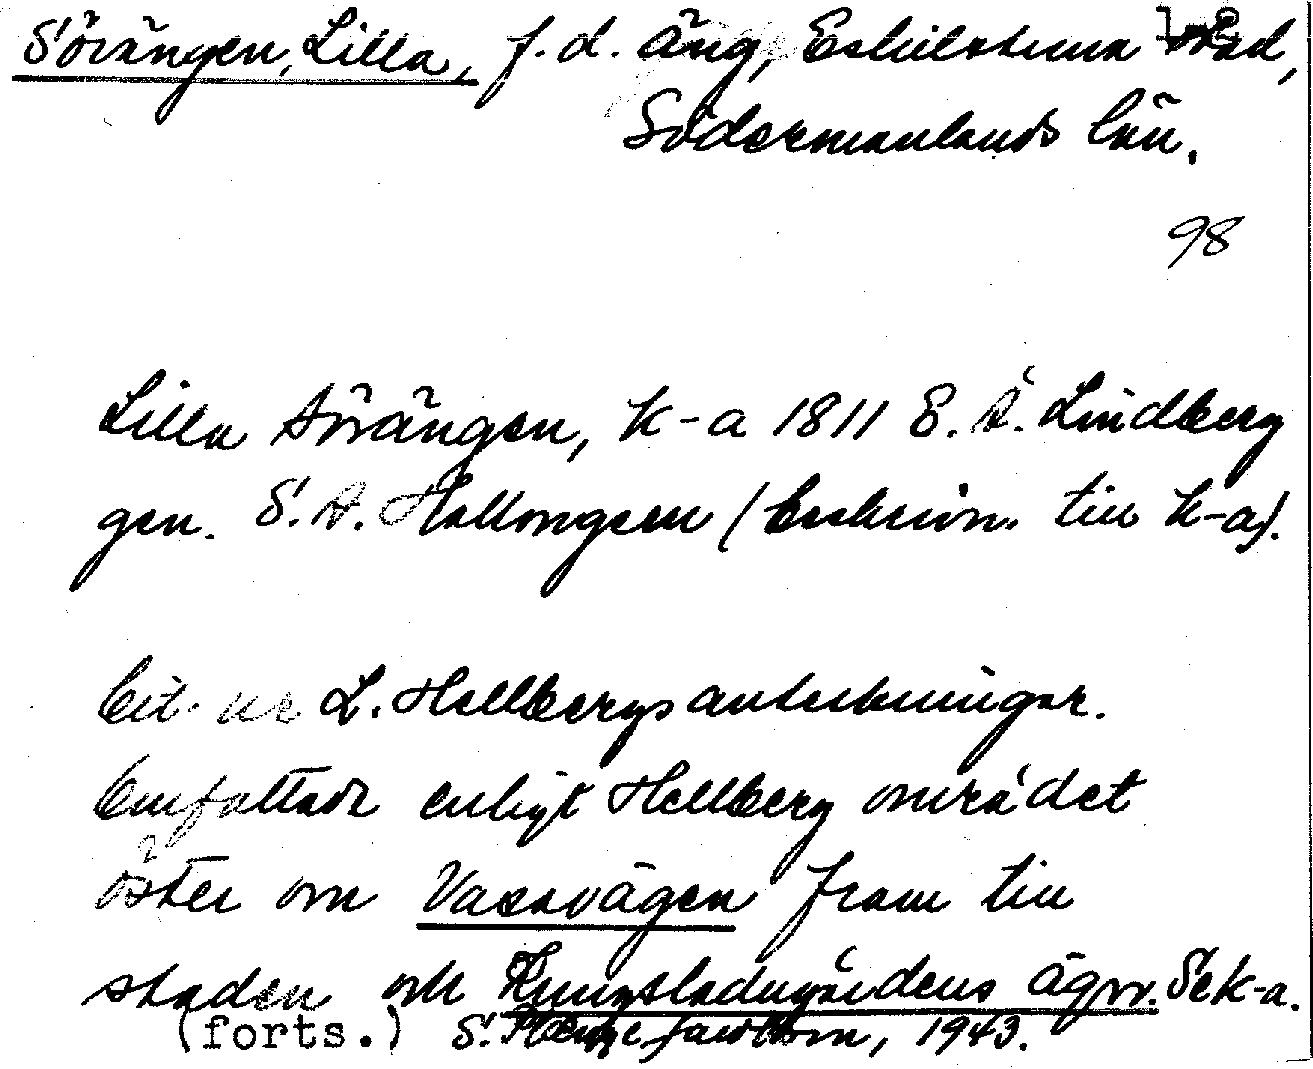 Sörängen, Lilla, f. d. äng, Eskilstuna stad,
Södermanlands län.
98
Lilla Sörängen, K-a 1811 E. A. Lindberg
gen. S. A. Hallongren (beskrivn. till K-a).
Cit. ur L. Hellbergs anteckningar.
Omfattade enligt Hellberg området
öster om Vasavägen fram till
staden och Kungsladugårdens ägor. Se k-a.
(forts.) S. 1943.